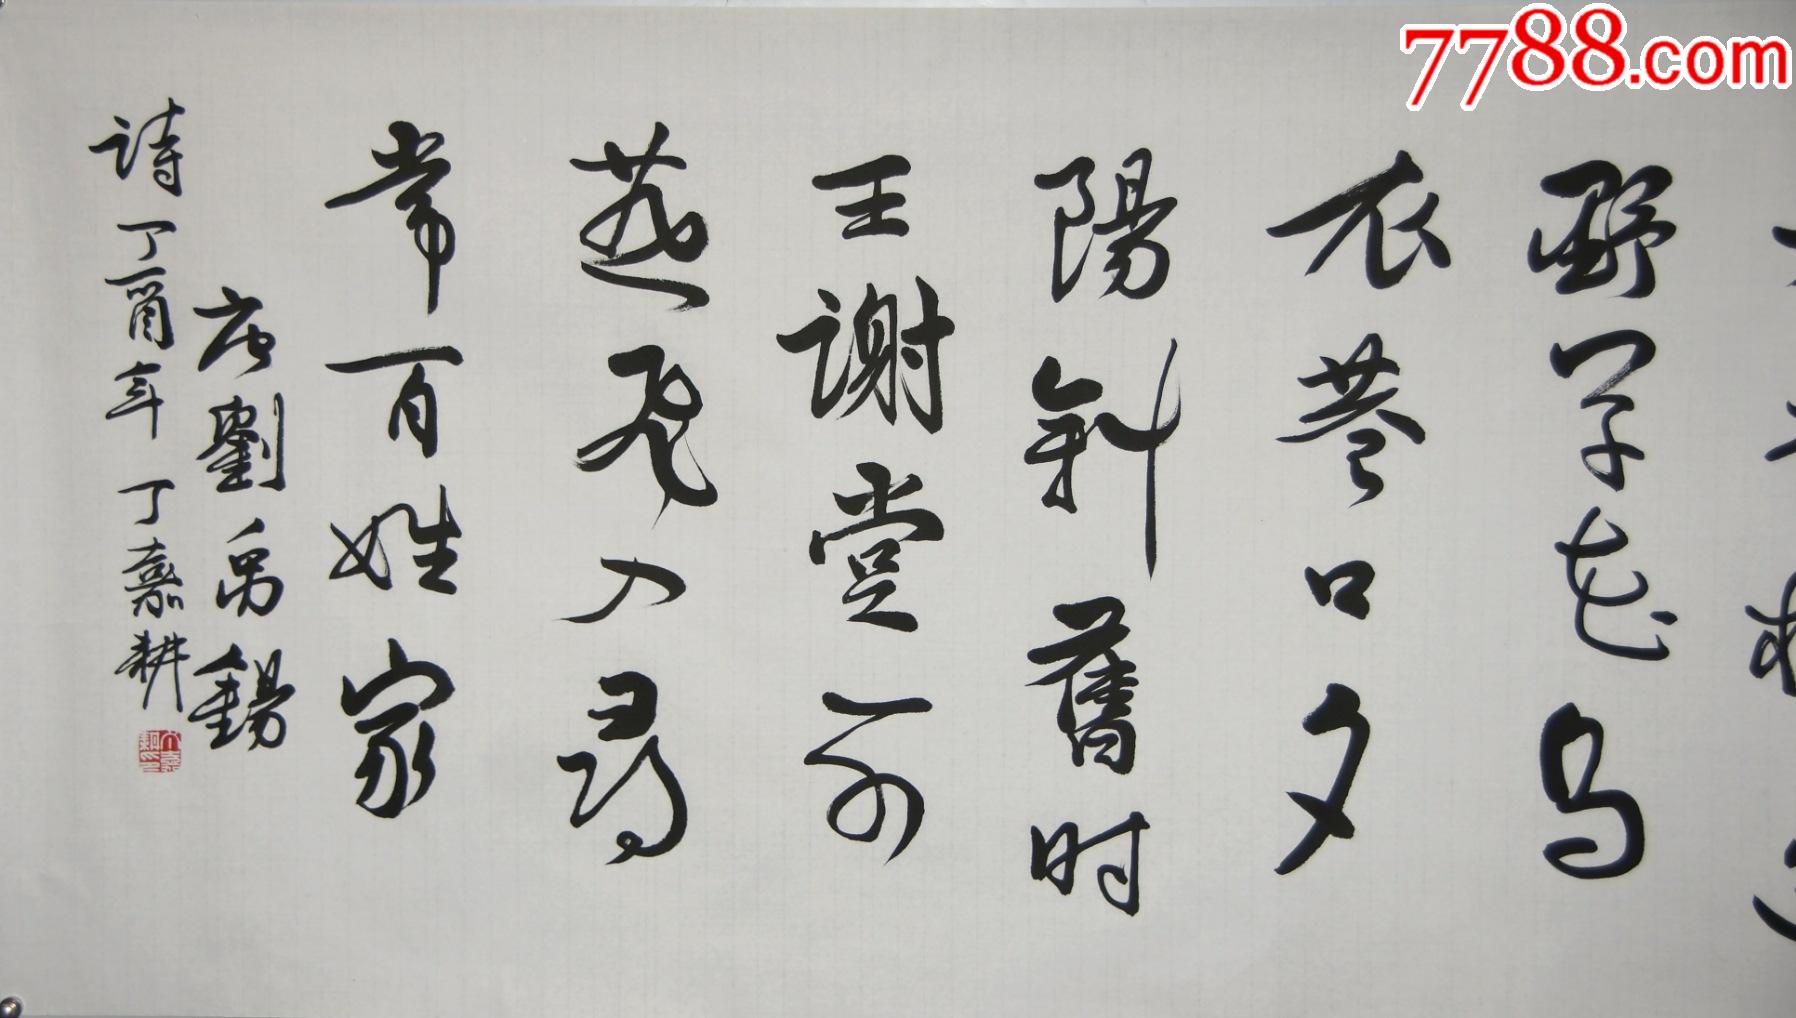 野草花乌
衣巷口夕
陽斜舊时
王谢堂前
燕飛入尋
常百姓家
唐劉禹錫
诗丁酉年丁嘉耕
7788.com